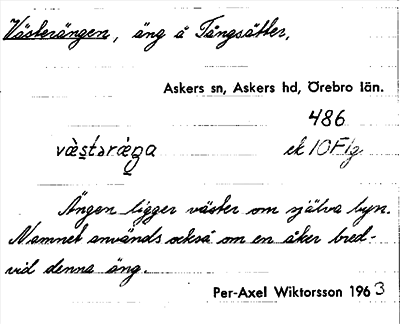 Västerängen, äng å Tångsätter,
Askers sn, Askers hd, Örebro län.
486
væ̀s̱təræŋa ek 10F1g
Ängen ligger väster om själva byn.
Namnet används också om en åker bred-
vid denna äng.
Per-Axel Wiktorsson 1963